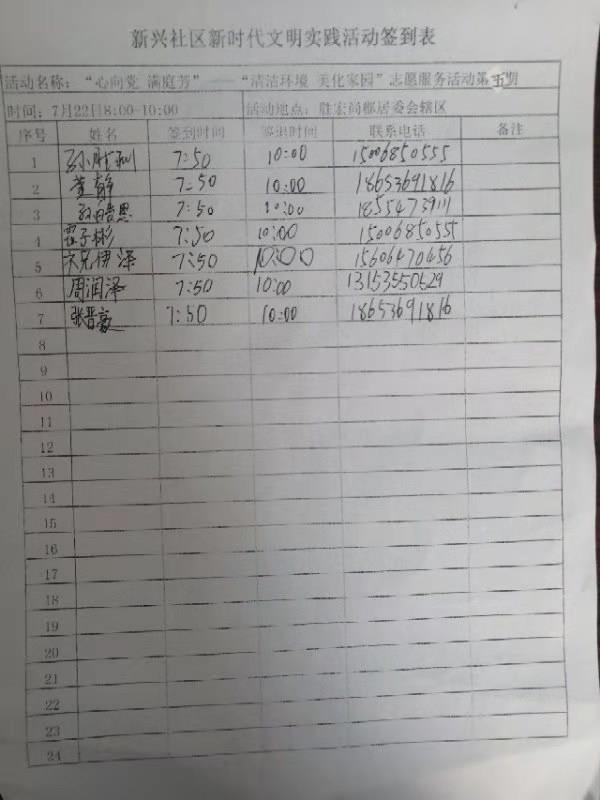 新兴社区新时代文明实践活动签到表
活动名称：“心向党 满庭芳”——“清洁环境 美化家园”志愿服务活动第五期
时间：7月22日8:00-10:00 活动地点：胜宏尚郡居委会辖区
序号 姓名 签到时间 签退时间 联系电话 备注
1 孙胜利 7:50 10:00 15006850555
2 董静 7:50 10:00 18653691816
3 孙皓思 7:50 10:00 18554739111
4 子彬 7:50 10:00 15006850555
5 伊泽 7:50 10:00 15606470456
6 周润泽 7:50 10:00 13153550529
7 张晋豪 7:50 10:00 18653691816
8
9
10
11
12
13
14
15
16
17
18
19
20
21
22
23
24